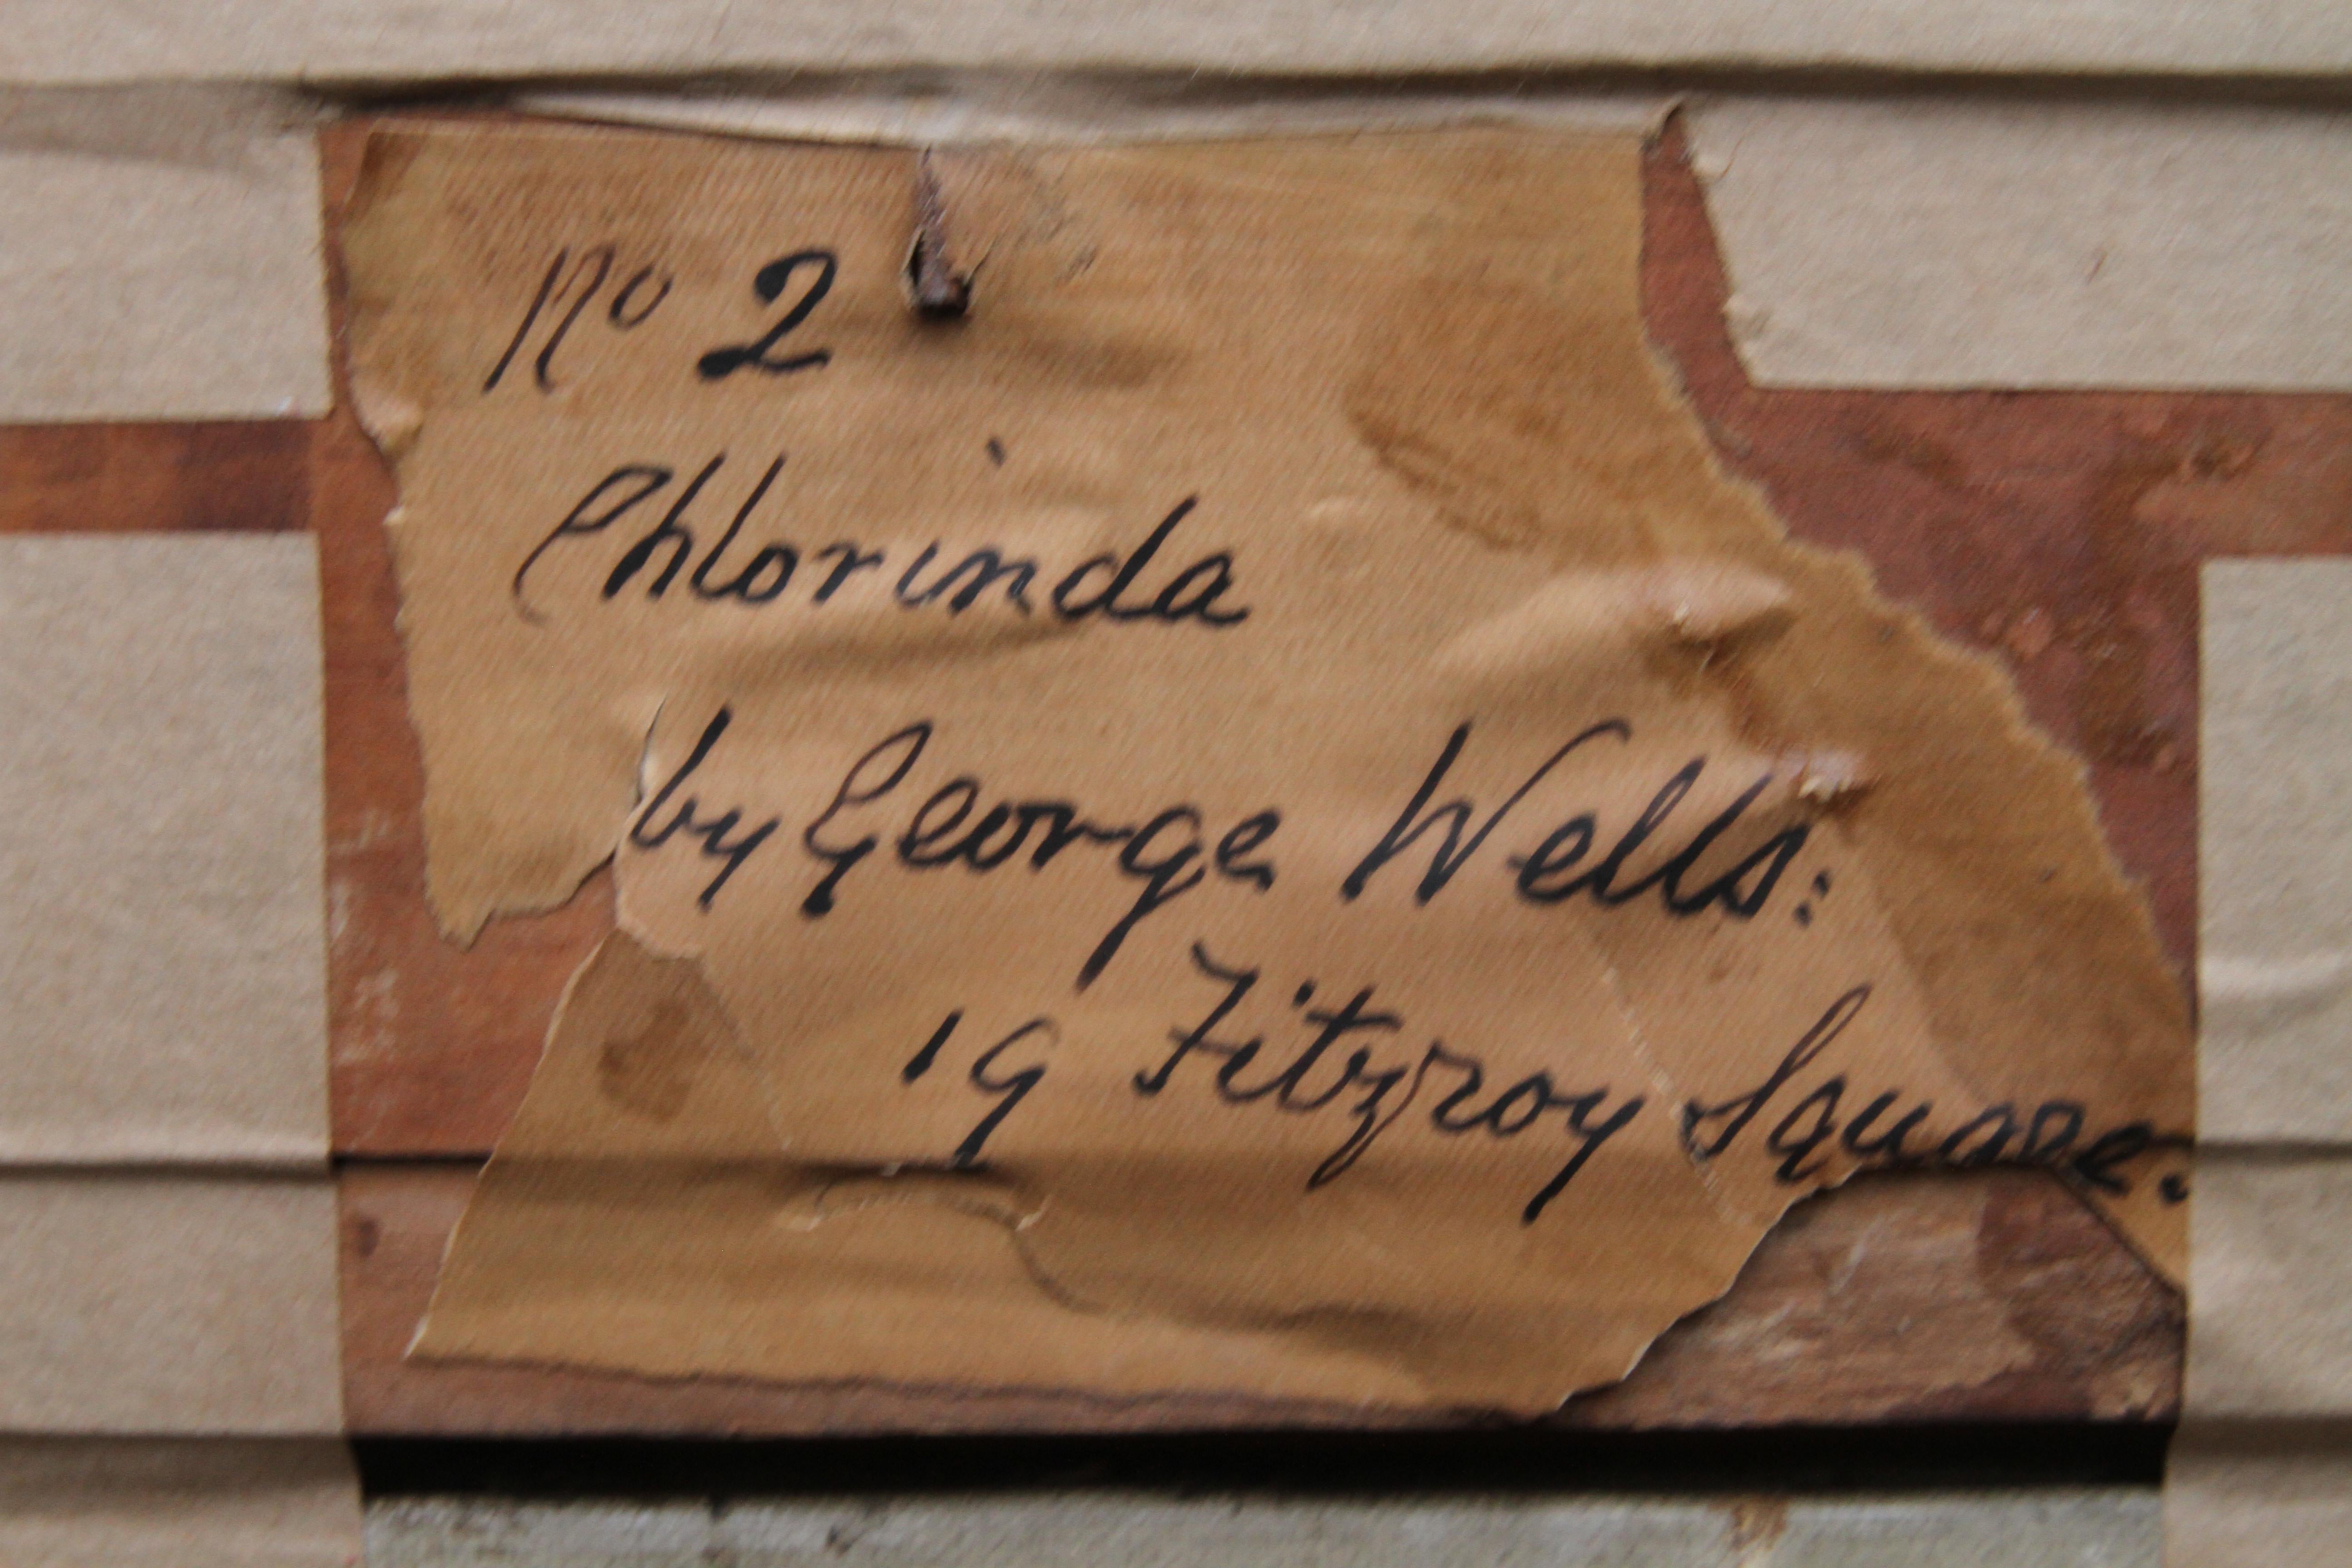 No 2
Chlorinda
by George Wells:
19 Fitzroy Square.